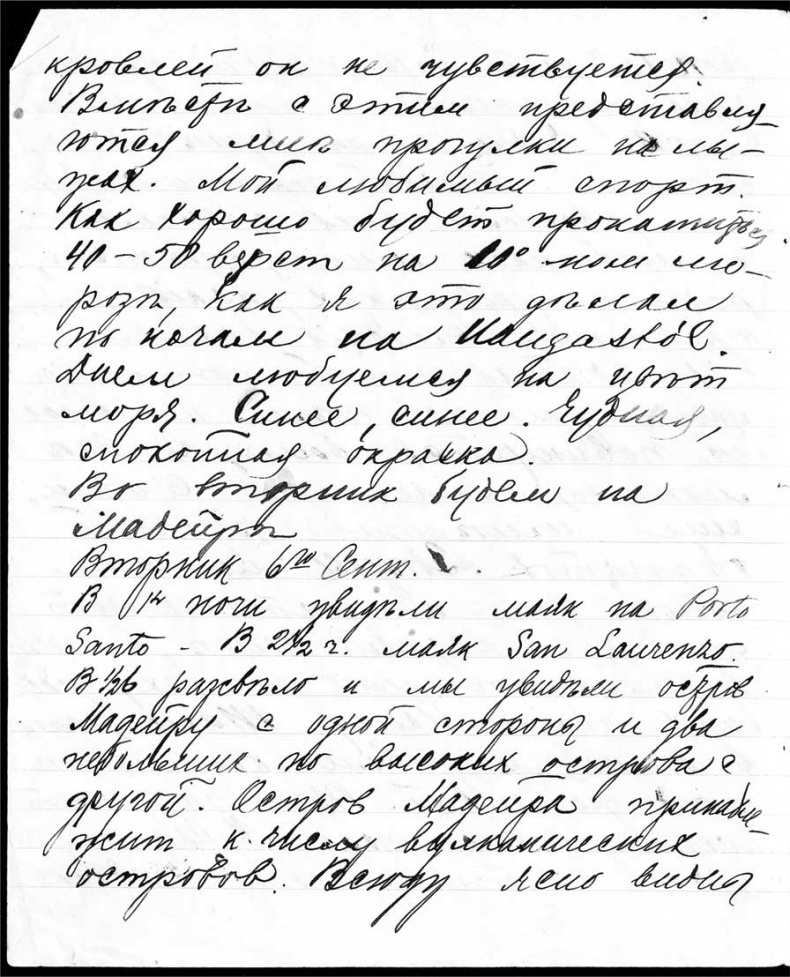 кровлей он не чувствуется.
Вмѣстѣ с этим представля-
ются мнѣ прогулки на лы-
жах. Мой любимый спорт.
Как хорошо будет прокатиться
40–50 верст на 10° ном мо-
розѣ, как я это дѣлал
по ночам на Haugastöl.
Днем любуемся на цвѣт
моря. Синее, синее. Чудная,
спокойная окраска.
Во вторник будем на
Мадейрѣ
Вторник 6го Сент.
В 12 ночи увидѣли маяк на Porto
Santo – В 2½ ч. маяк San Laurenzo.
В ½6 разсвѣло и мы увидѣли остров
Мадейру с одной стороны и два
небольших но высоких острова с
другой. Остров Мадейра принадле-
жит к числу вулканических
островов. Всюду ясно видны